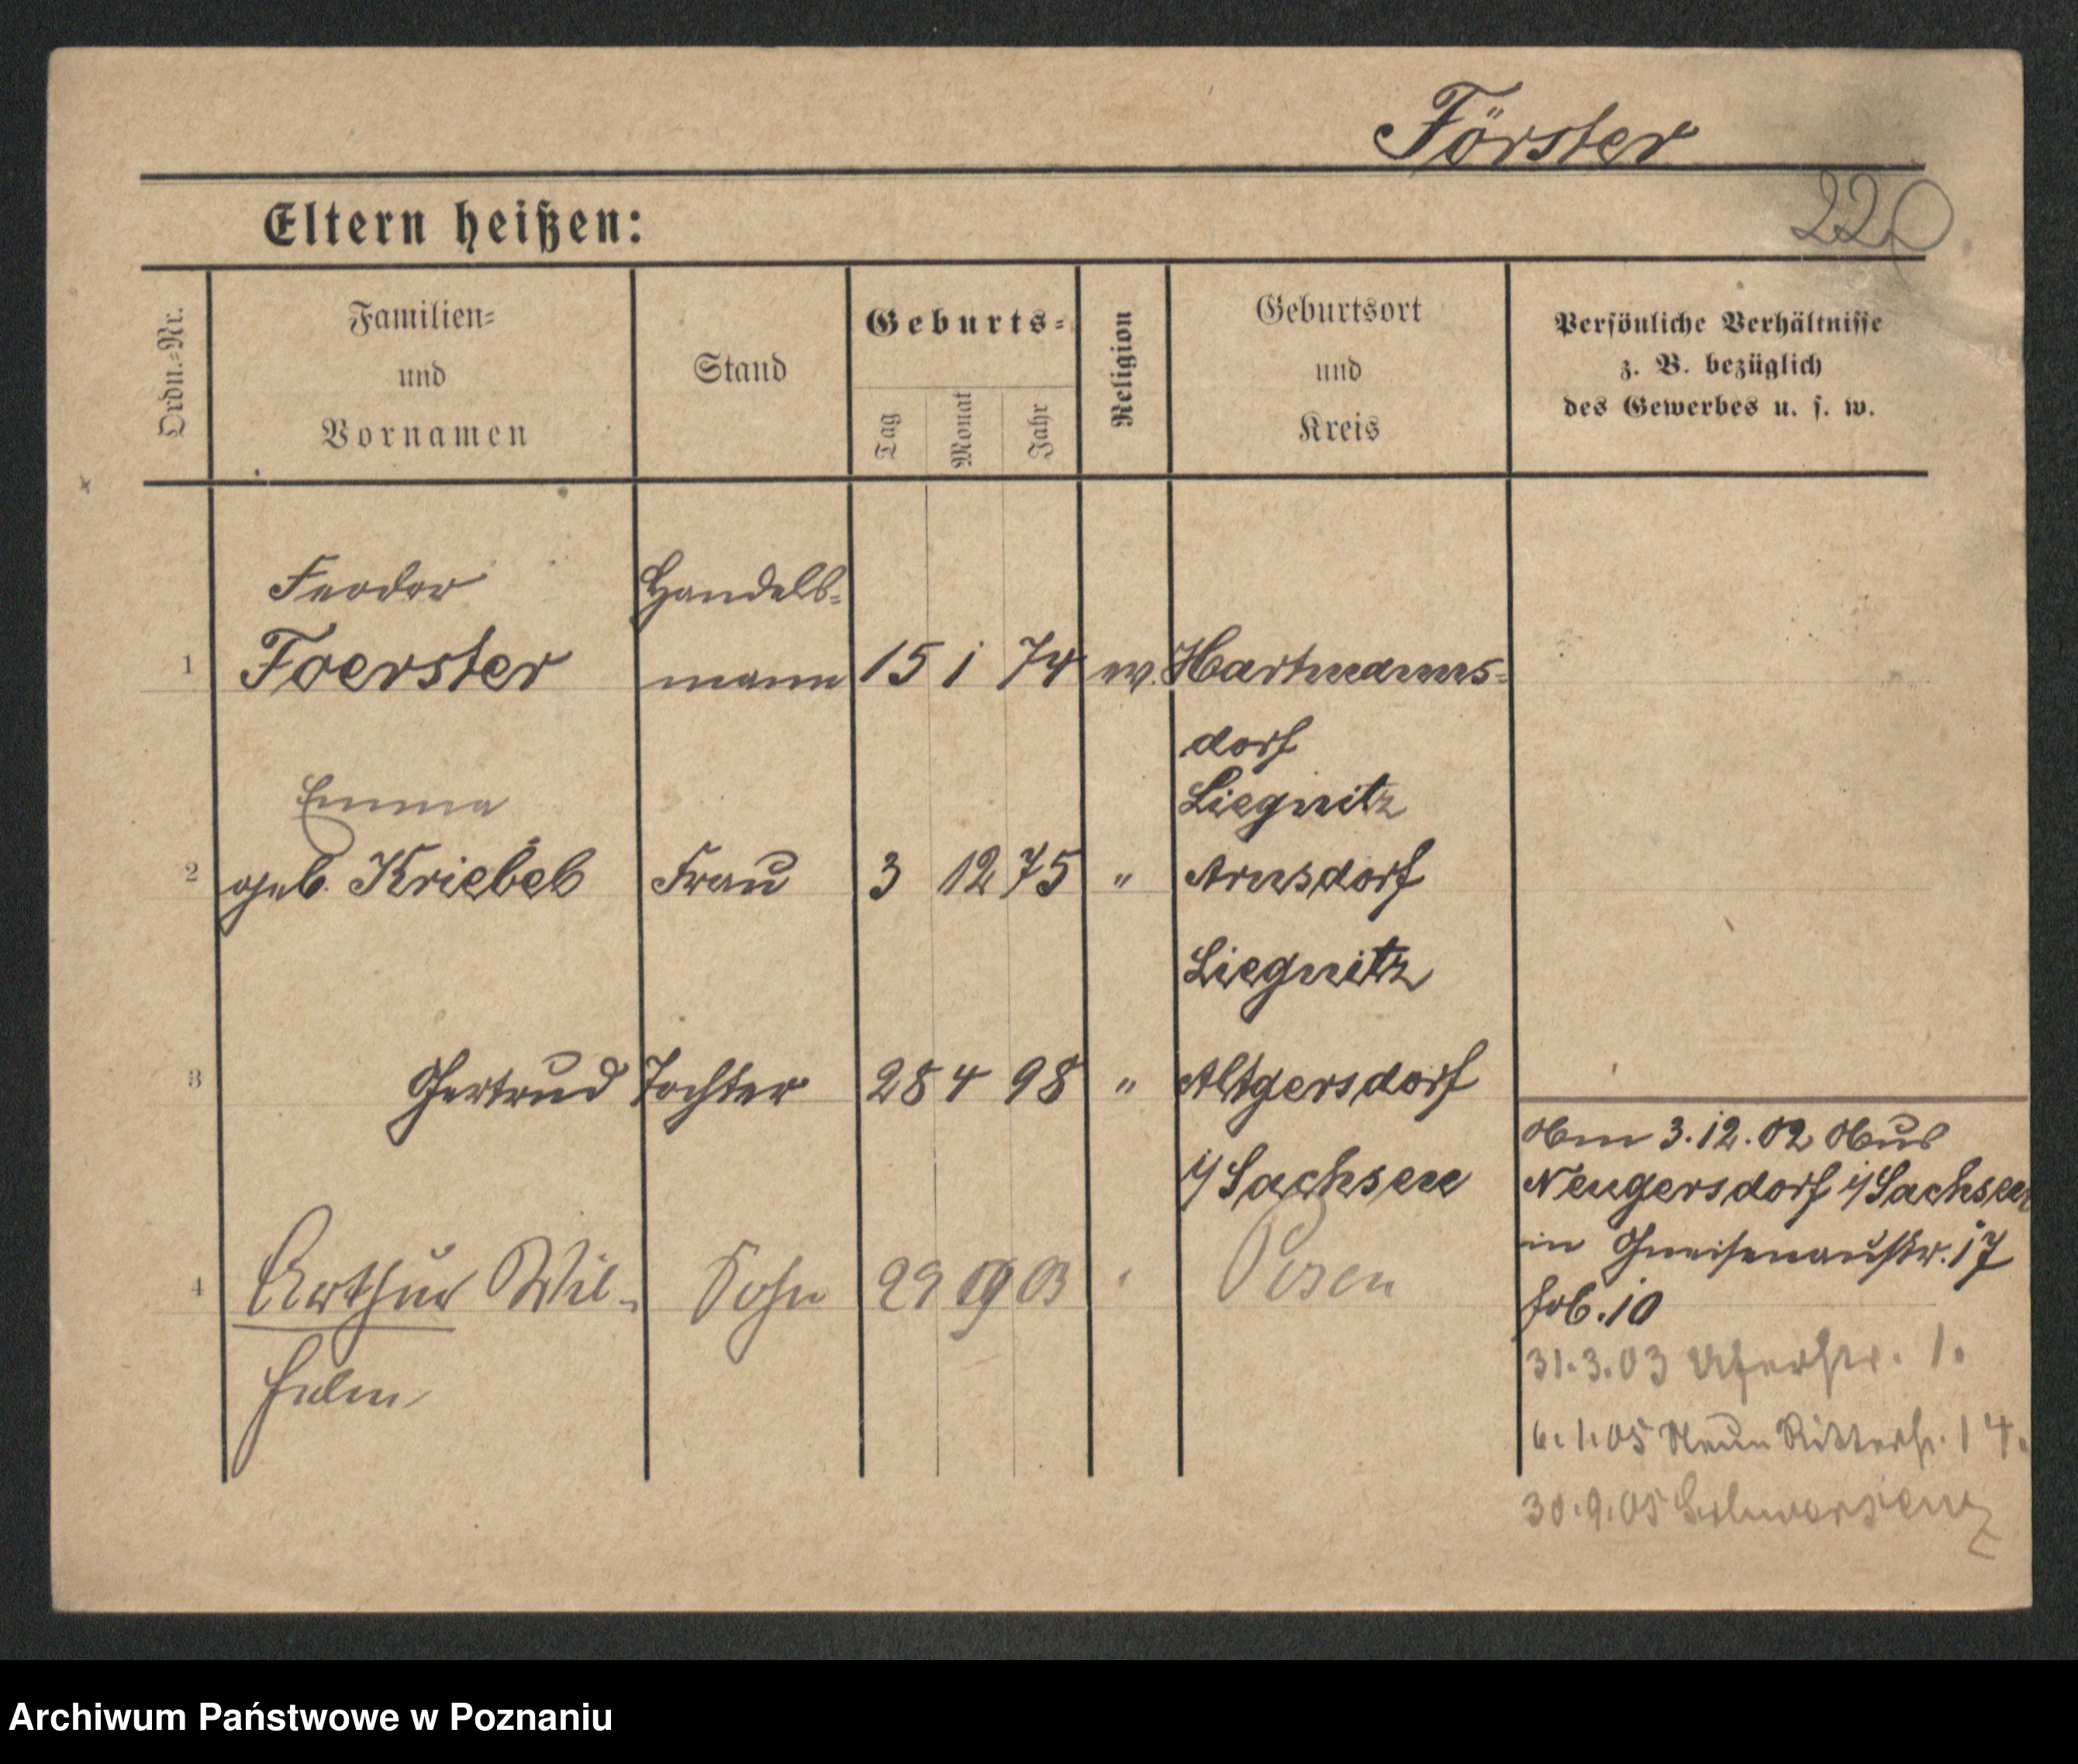 Förster
220
Eltern heißen:
Ordn.-Nr.
Familien-
und
Vornamen
Stand
Geburts-
Tag
Monat
Jahr
Religion
Geburtsort
und
Kreis
Persönliche Verhältnisse
z. B. bezüglich
des Gewerbes u. s. w.
Feodor Handels-
1 Foerster mann 15 1 74 ev. Hartmanns-
dorf
Liegnitz
Emma
2 geb. Kriebel Frau 3 12 75 " Arnsdorf
Liegnitz
3 Gertrud Tochter 28 4 98 " Altgersdorf
i/Sachsen
4 Arthur Wil- Sohn 29 9 03 " Posen
helm
Am 3.12.02 Aus
Neugersdorf i/Sachsen
in Gneisenaustr. 17
31.3.03 Uferstr. 1.
6.1.05 Neue Ritterstr. 14.
30.9.05 Schwersenz
Archiwum Państwowe w Poznaniu